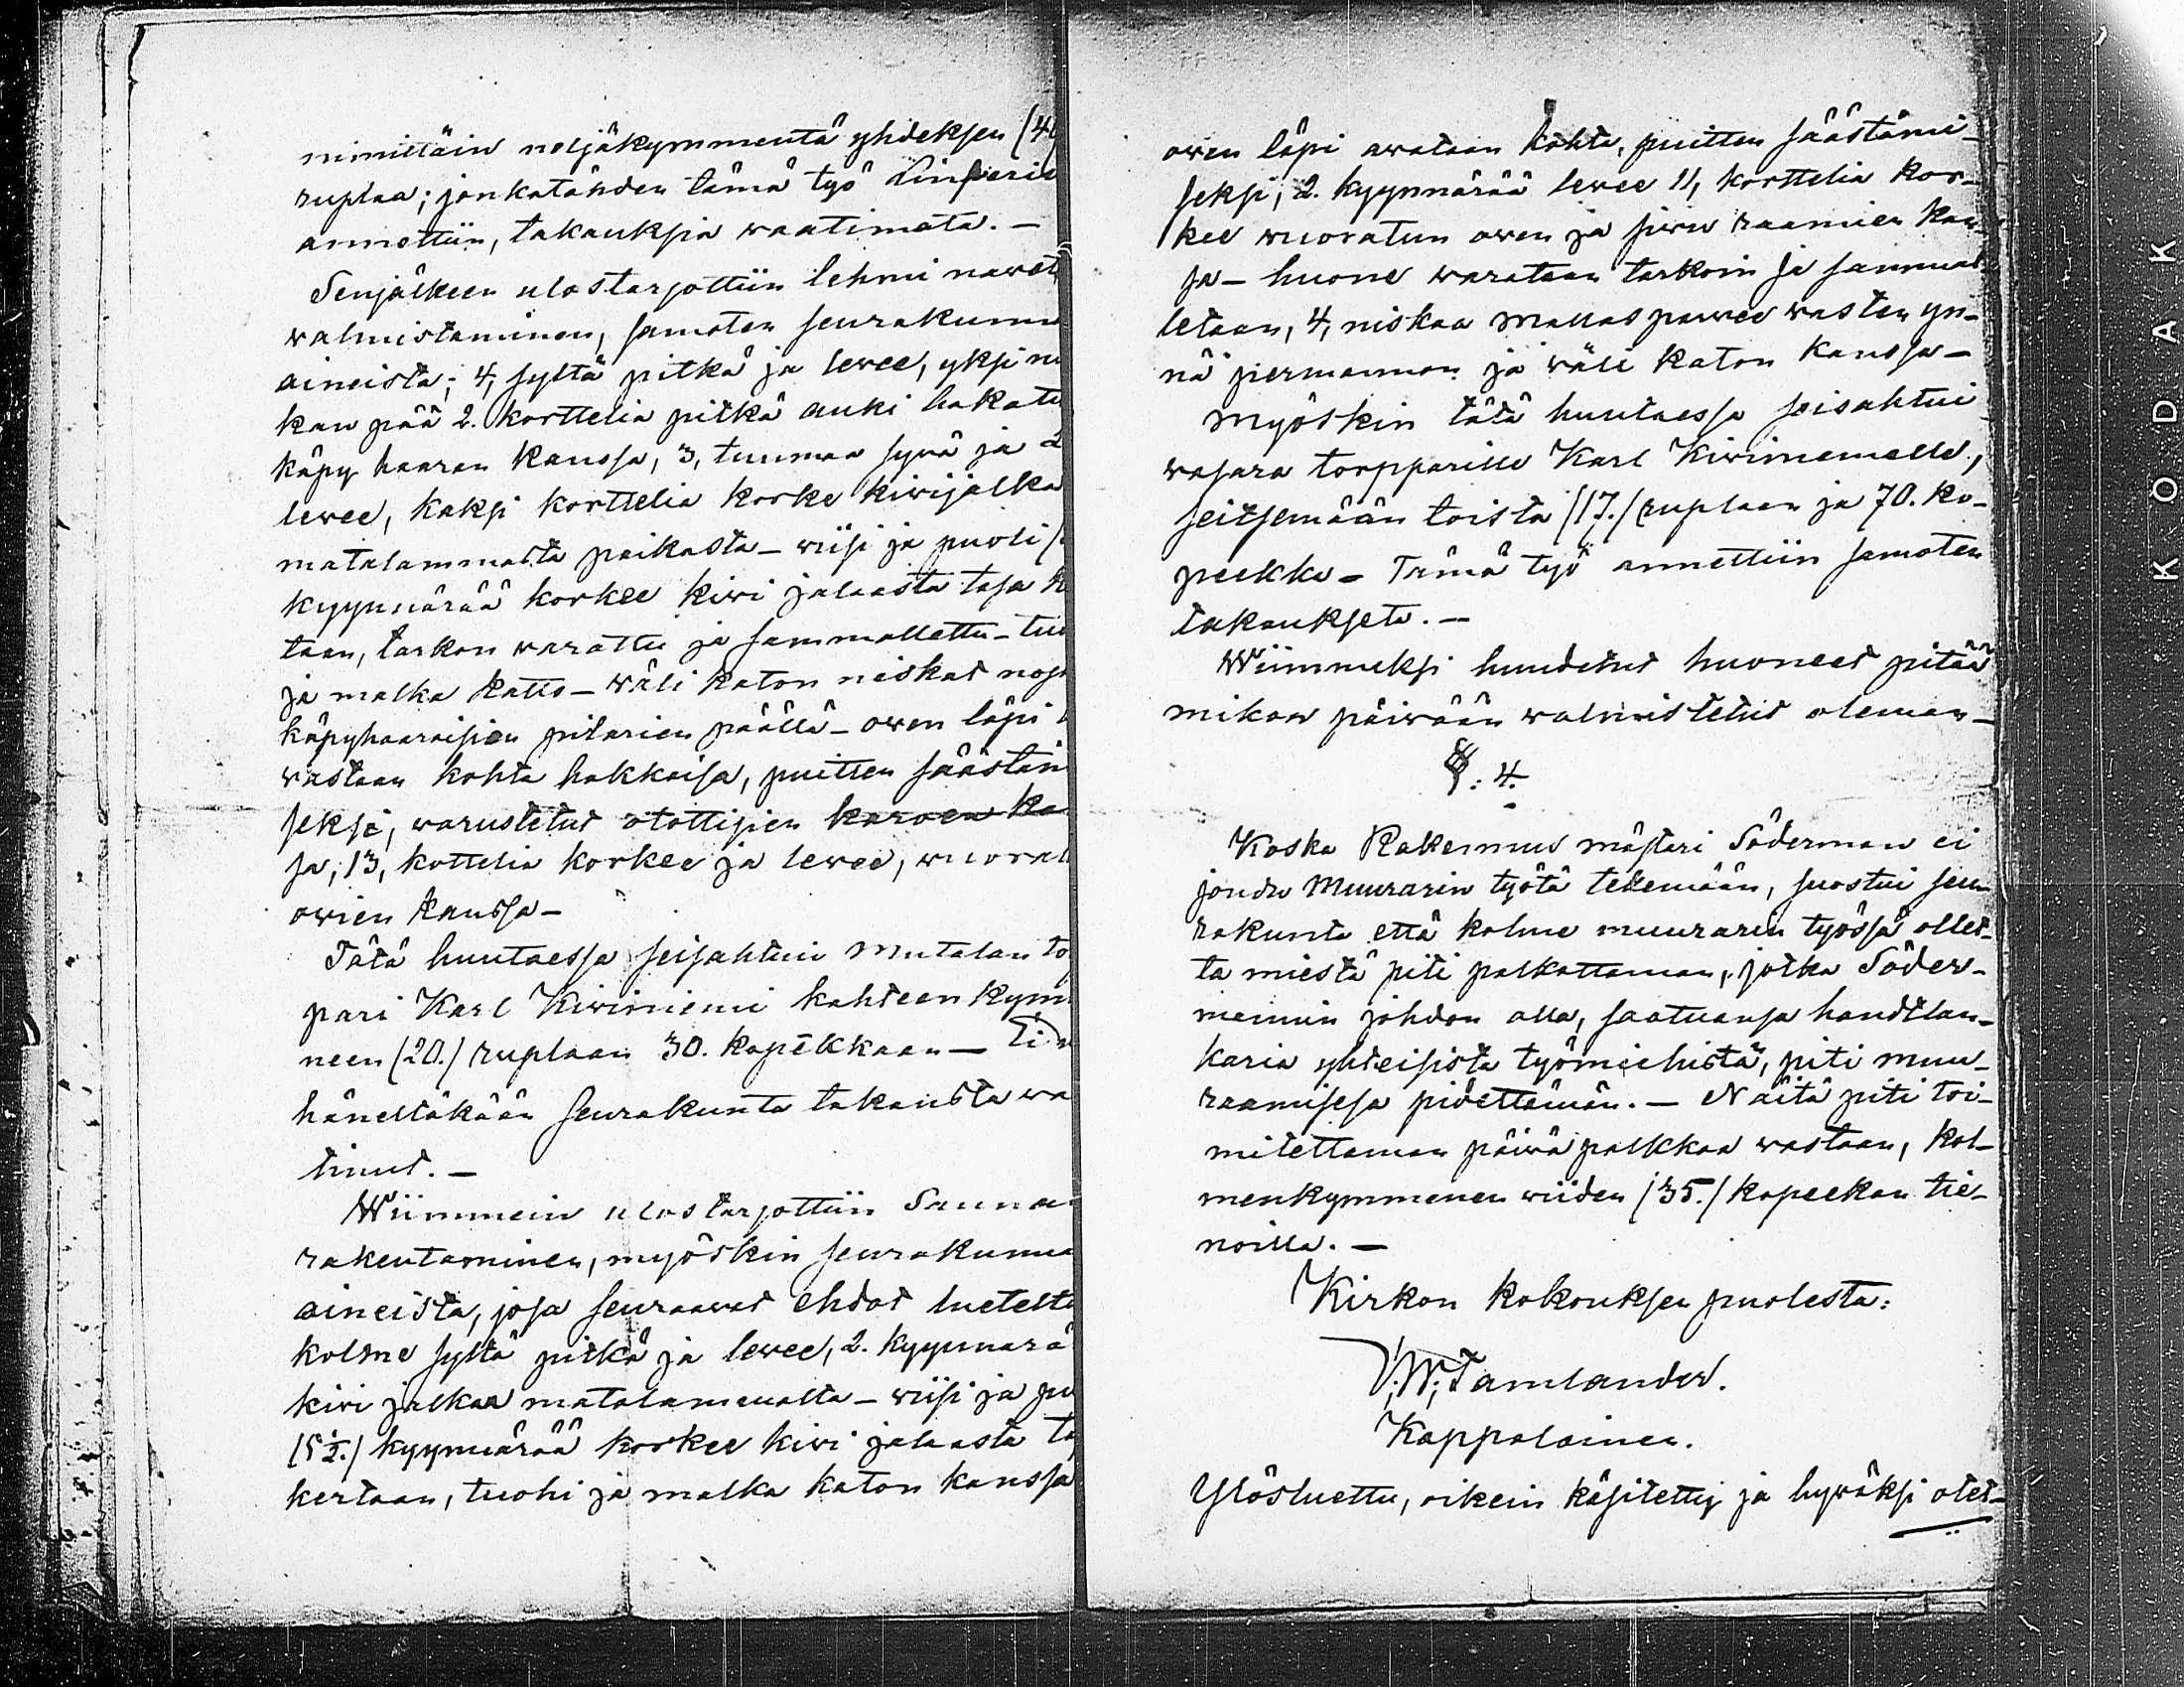 nimittäin neljäkymmentä yhdeksen (4
ruplaa; jonkatähden tämä työ Linperi
annettiin, takauksia waatimata. —
Senjälkeen ulostarjottiin lehmi nawet
walmistaminen, samoten seurakunn
aineista; 4, syltä pitkä ja lewee, yksi n
kan pää 2. korttelia pitkä auki hakatu
käpy haaran kanssa, 3, tuumaa sywä ja 2
lewee, kaksi korttelia korke kiwijalka
matalammasta paikasta — wiisi ja puoli
kyynärää korkee kiwi jalaasta tasa k
taan, tarkon warattu ja sammallettu — tuo
ja malka katto — wäli katon niskat noj
käpyhaaraisien pilarien päällä — owen läpi
wastaan kohta hakkaisa, puitten säästäm
seksi, warustetut otottisien karoen ka
sa, 13, kottelia korkee ja lewee, wuorat
owien kanssa —
Tätä huutaessa seisahtui Mutalan to
pari Karl Kiwiniemi kahteen kym
neen (20.) ruplaan 30. kopekkaan — Ei
häneltäkään seurakunta takausta wa
tinut. —
Wiimmein ulostarjottiin Sauna
rakentaminen, myöskin seurakunna
aineista, josa seuraawat ehdot luetelti
kolme syltä pitkä ja lewee, 2. kyynärä
kiwi jalkaa matalammalta — wiisi ja pu
(5½.) kyynärää korkee kiwi jalaasta ta
kertaan, tuohi ja malka katon kanssa
owen läpi awataan kohta, puitten säästämi-
seksi, 2. kyynärää lewee 11, korttelia kor-
kee wuoratun owen ja siwu raamien kan-
sa — huone warataan tarkoin ja sammal
letaan, 4, niskaa mallaspawee wasten yn-
nä permannon ja wäli katon kanssa —
Myöskin tätä huutaessa seisahtui
wasara torpparille Karl Kiwiniemelle,
seitsemään toista (17.) ruplaan ja 70. ko-
peekka — Tämä työ annettiin samoten
takaukseta. —
Wiimmeksi huudetut huoneet pitää
mikon päiwään walmistetut oleman —
§. 4.
Koska Rakennus mästari Söderman ei
joudu Muurarin työtä tekemään, suostui seu-
rakunta että kolme muurarin työssä ollet-
ta miestä piti palkattaman, jotka Söder-
mannin johdon alla, saatuansa handtlan-
karia yhteisistä työmiehistä, piti muu-
raamisesa pidettämän. — Näitä piti toi-
mitettaman päiwä palkkaa wastaan, kol-
menkymmenen wiiden (35.) kopeekan tie-
noilla. —
Kirkon kokouksen puolesta:
V. W. Tamlander.
Kappalainen.
Ylösluettu, oikein käsitetty ja hywäksi otet-